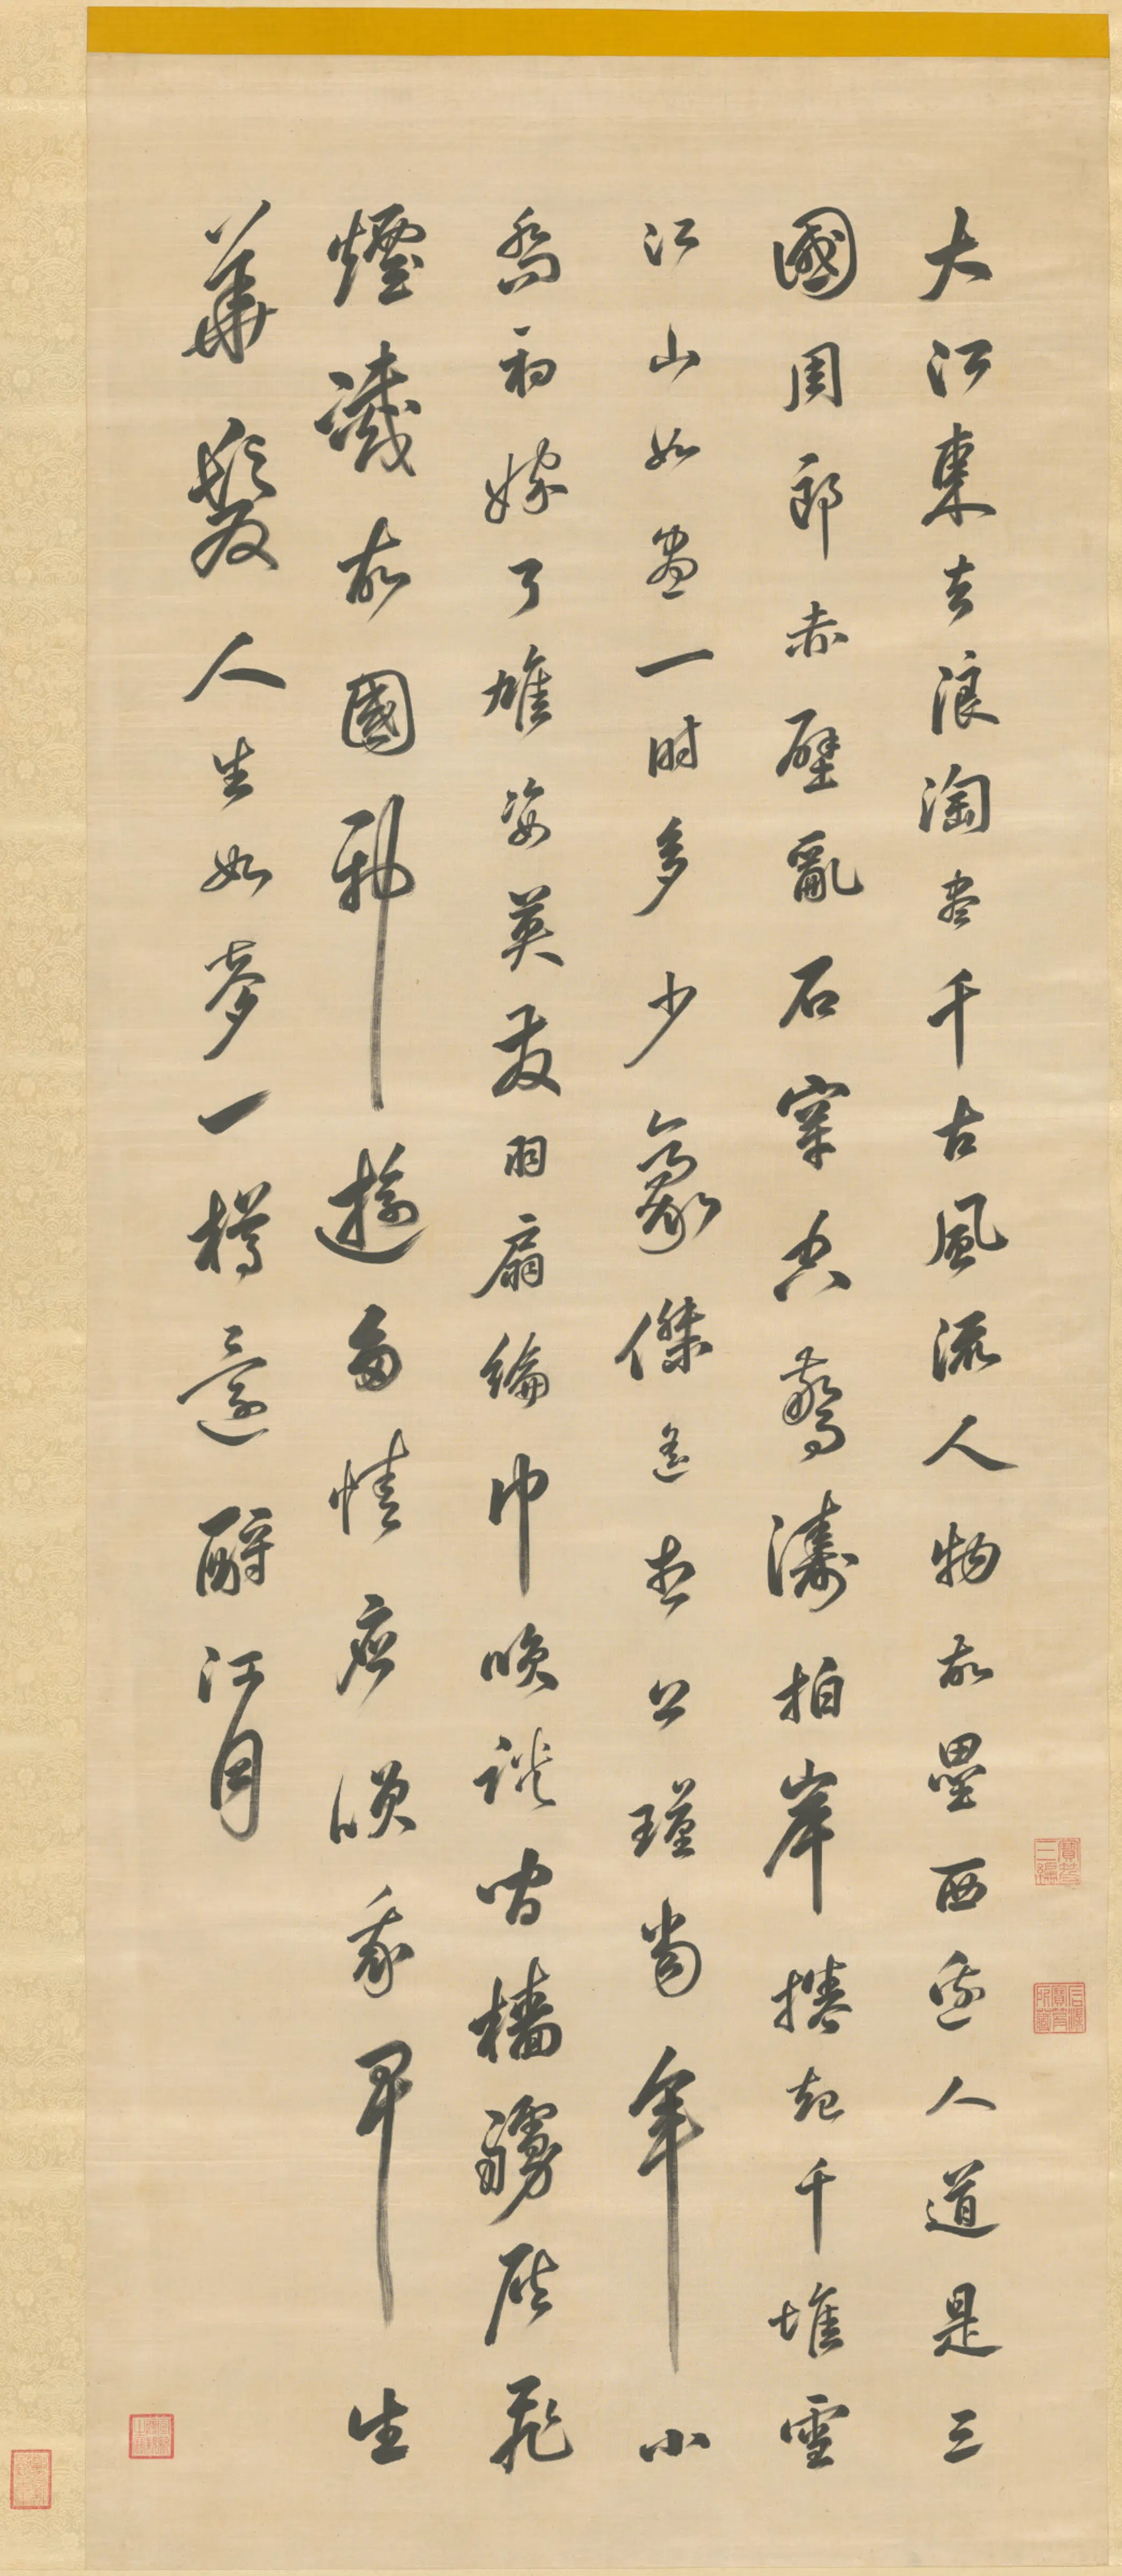 大江東去浪淘盡千古風流人物故壘西邊人道是三
國周郎赤壁亂石穿空驚濤拍岸捲起千堆雪
江山如畫一時多少豪傑遙想公瑾當年小
喬初嫁了雄姿英發羽扇綸巾咲談間檣艣灰飛
煙滅故國神遊多情應咲我早生
華髮人生如夢一樽還酹江月
寶笈三編
石渠寶笈所藏